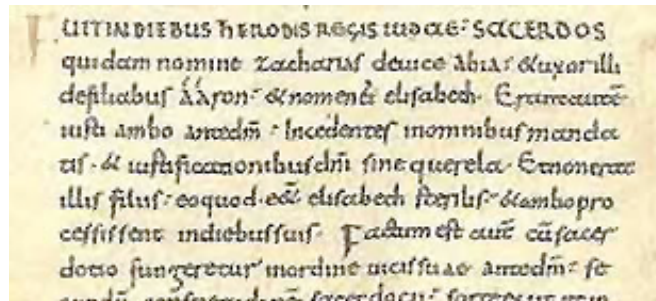 FUIT IN DIEBUS HERODIS REGIS IUDAE· SACERDOS
quidam nomine zacharias deuice abia· & uxor illi
de filiabus aaron· & nomen ei elisabeth· Erant aute
iusti ambo ante dm· Incedentes in omnibus manda
tis· & iustificationibus dni sine querela· Et non erat
illis filius· eo quod e& elisabeth sterilis· & ambo pro
cessissent in diebus suis· Factum est aut cu sacer
dotio fungeretur in ordine uicis suae ante dm· se
cundu consuetudine sacerdocii· sorte exiit ut in